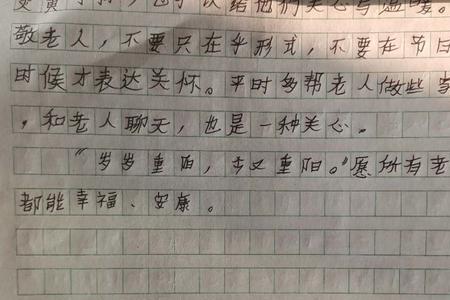 也可以给他们关心与温暖。
敬老人，不要只在乎形式，不要在节日
时候才表达关怀。平时多帮老人做些
，和老人聊天，也是一种关心。
“岁岁重阳，又重阳。”愿所有老
都能幸福、安康。